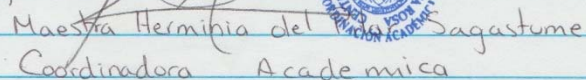 Maestra Herminia del Sagastume
COORDINACIÓN ACADÉMICA
Coordinadora Academica